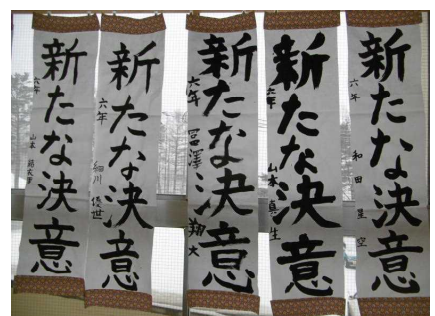 新たな決意
六年 和田 星空
新たな決意
六年 山本 真生
新たな決意
六年 冨澤 翔大
新たな決意
六年 細川
新たな決意
六年 山本